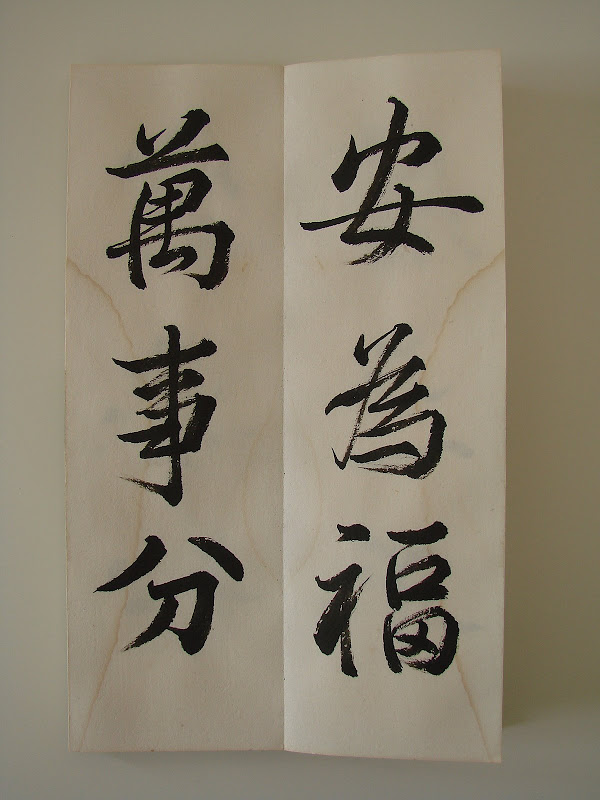 安為福
萬事分